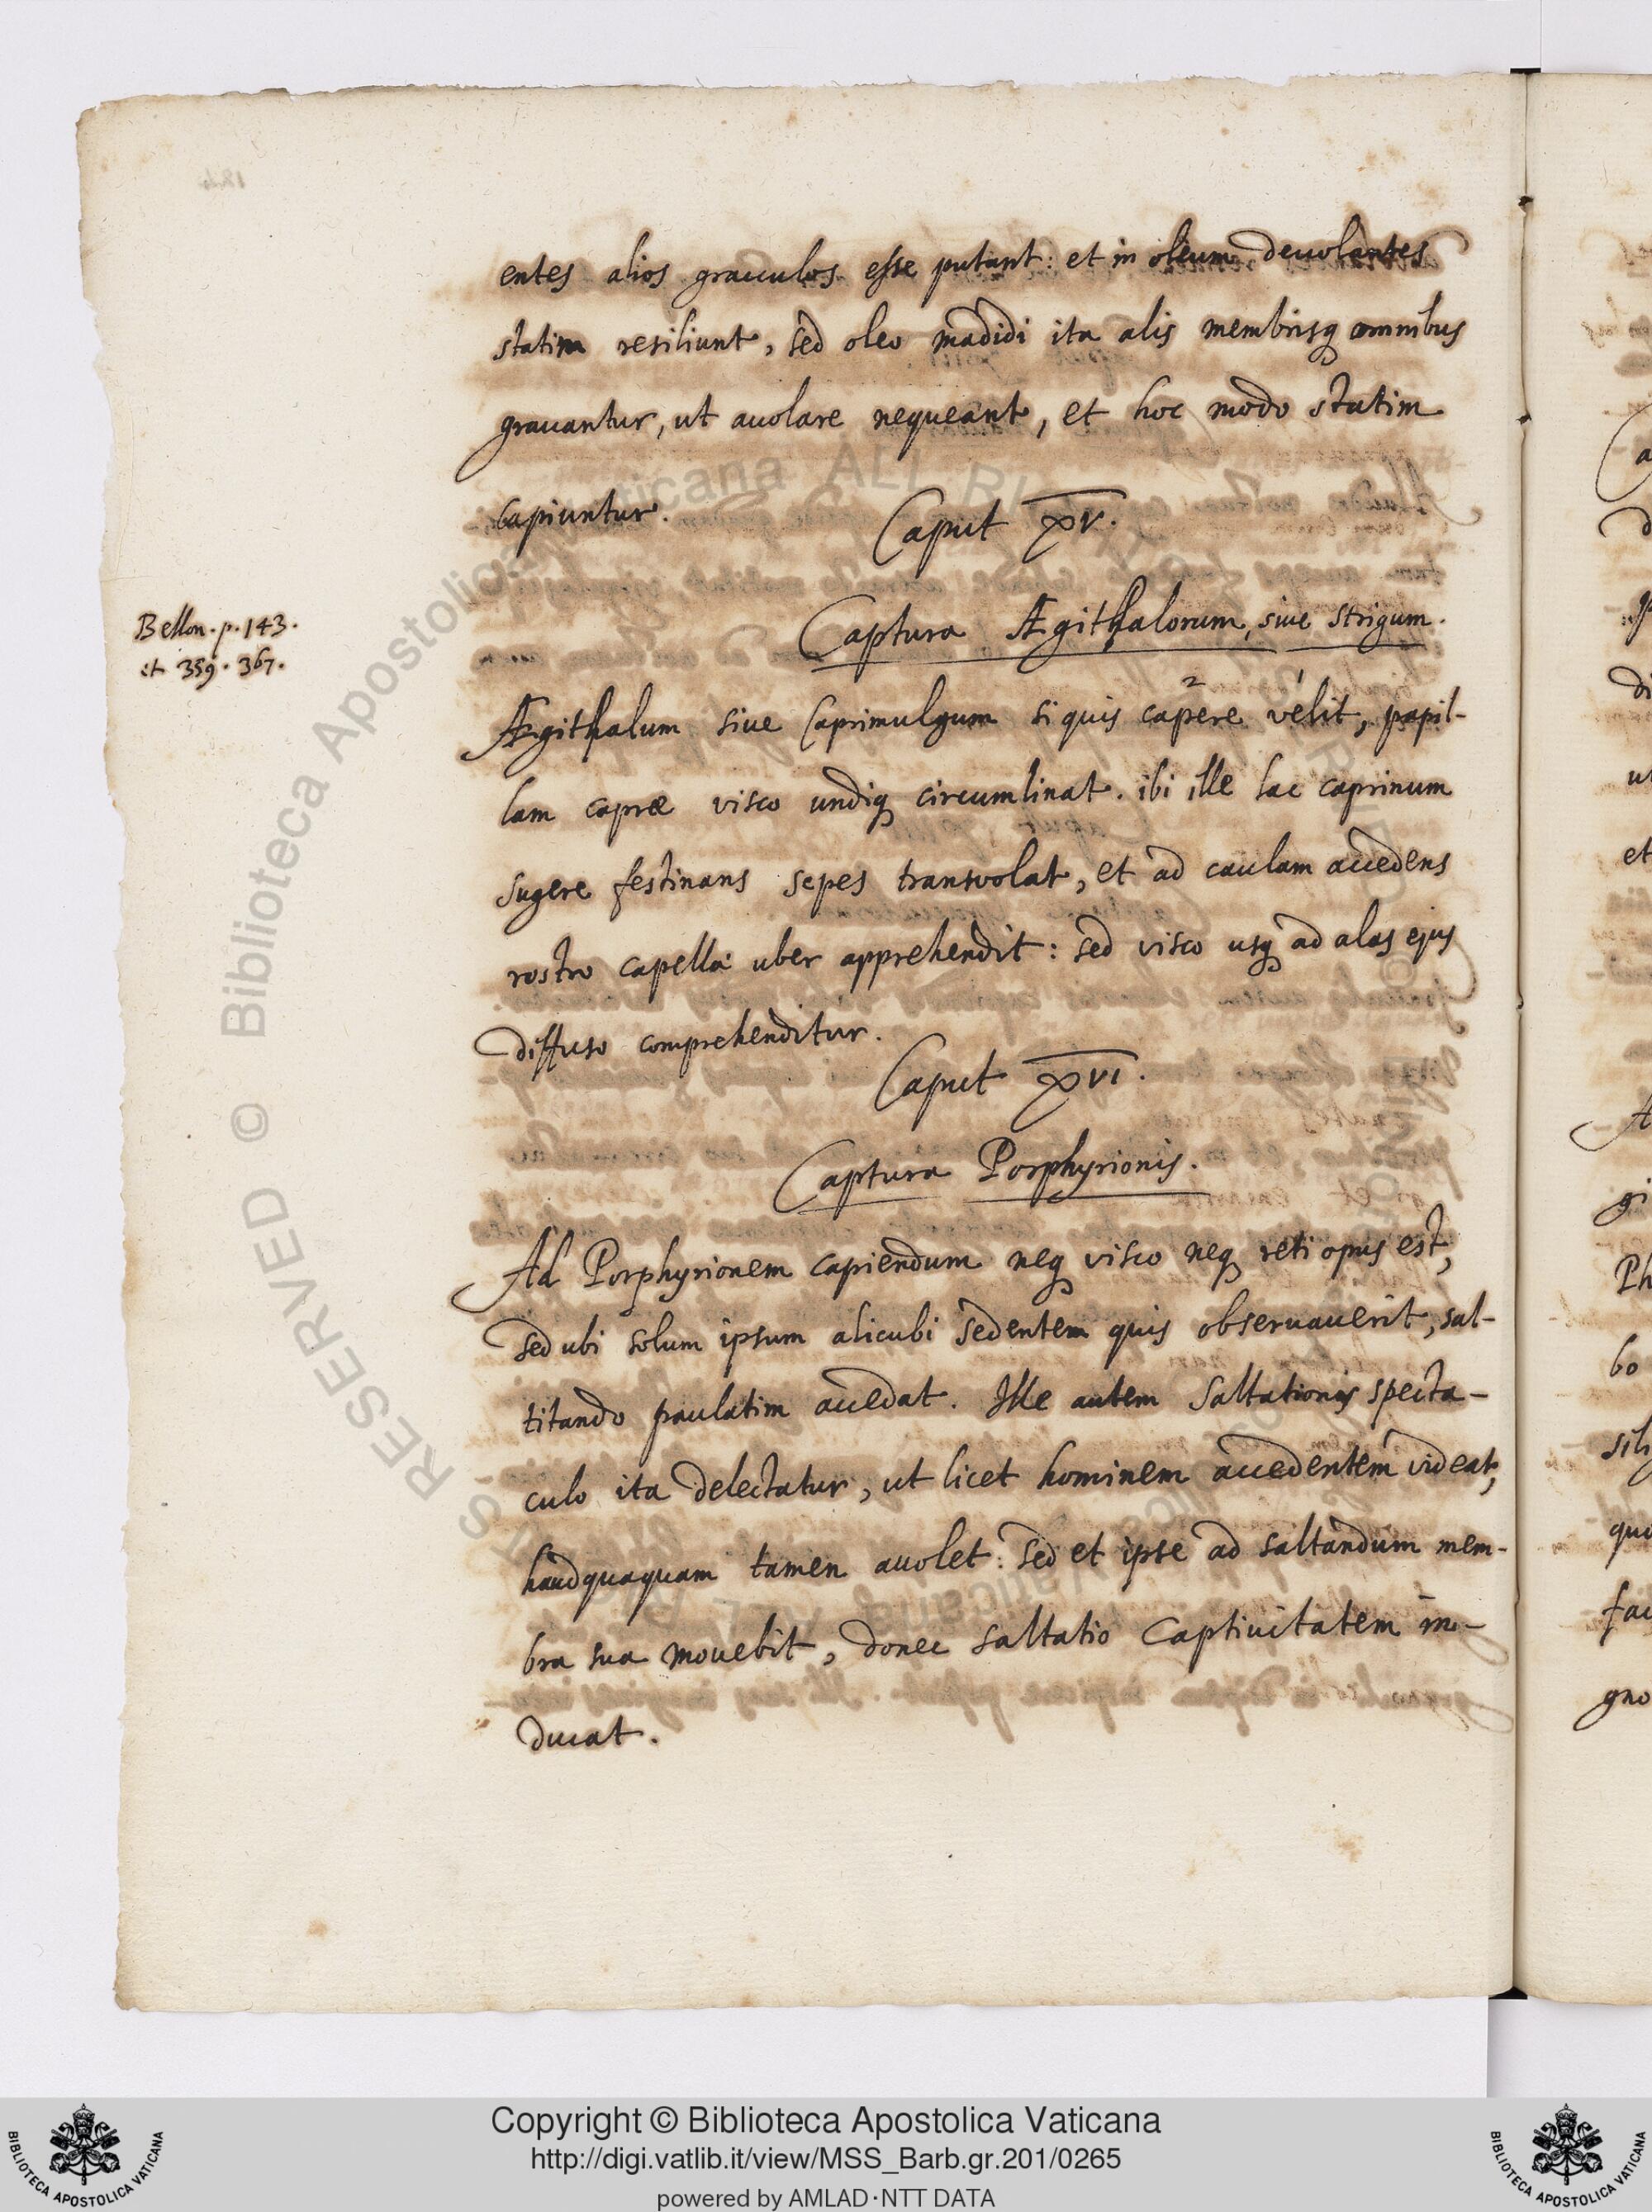 entes alios gracculos esse putant: et in oleum devolantes
statim resiliunt, sed oleo madidi ita alis membrisq omnibus
grauantur, ut auolare nequeant, et hoc modo statim
capiuntur.
Caput XV.
Captura Ægithalorum, siue strigum.
Bellon. p. 143.
it 359. 367.
Ægithalum siue Caprimulgum si quis capere velit, papil-
lam capræ visco undiq circumlinat. ibi ille lac caprinum
sugere festinans sepes transvolat, et ad caulam accedens
rostro capellæ uber apprehendit: sed visco usq ad alas ejus
diffuso comprehenditur.
Caput XVI.
Captura Porphyrionis.
Ad Porphyrionem capiendum neq visco neq reti opus est,
sed ubi solum ipsum alicubi sedentem quis obseruauerit, sal-
titando paulatim accedat. Ille autem saltationis specta-
culo ita delectatur, ut licet hominem accedentem videat,
haudquaquam tamen auolet: sed et ipse ad saltandum mem-
bra sua mouebit, donec saltatio captiuitatem in-
ducat.
© Biblioteca Apostolica Vaticana ALL RIGHTS RESERVED
Copyright © Biblioteca Apostolica Vaticana
http://digi.vatlib.it/view/MSS_Barb.gr.201/0265
powered by AMLAD·NTT DATA
BIBLIOTECA APOSTOLICA VATICANA
BIBLIOTECA APOSTOLICA VATICANA